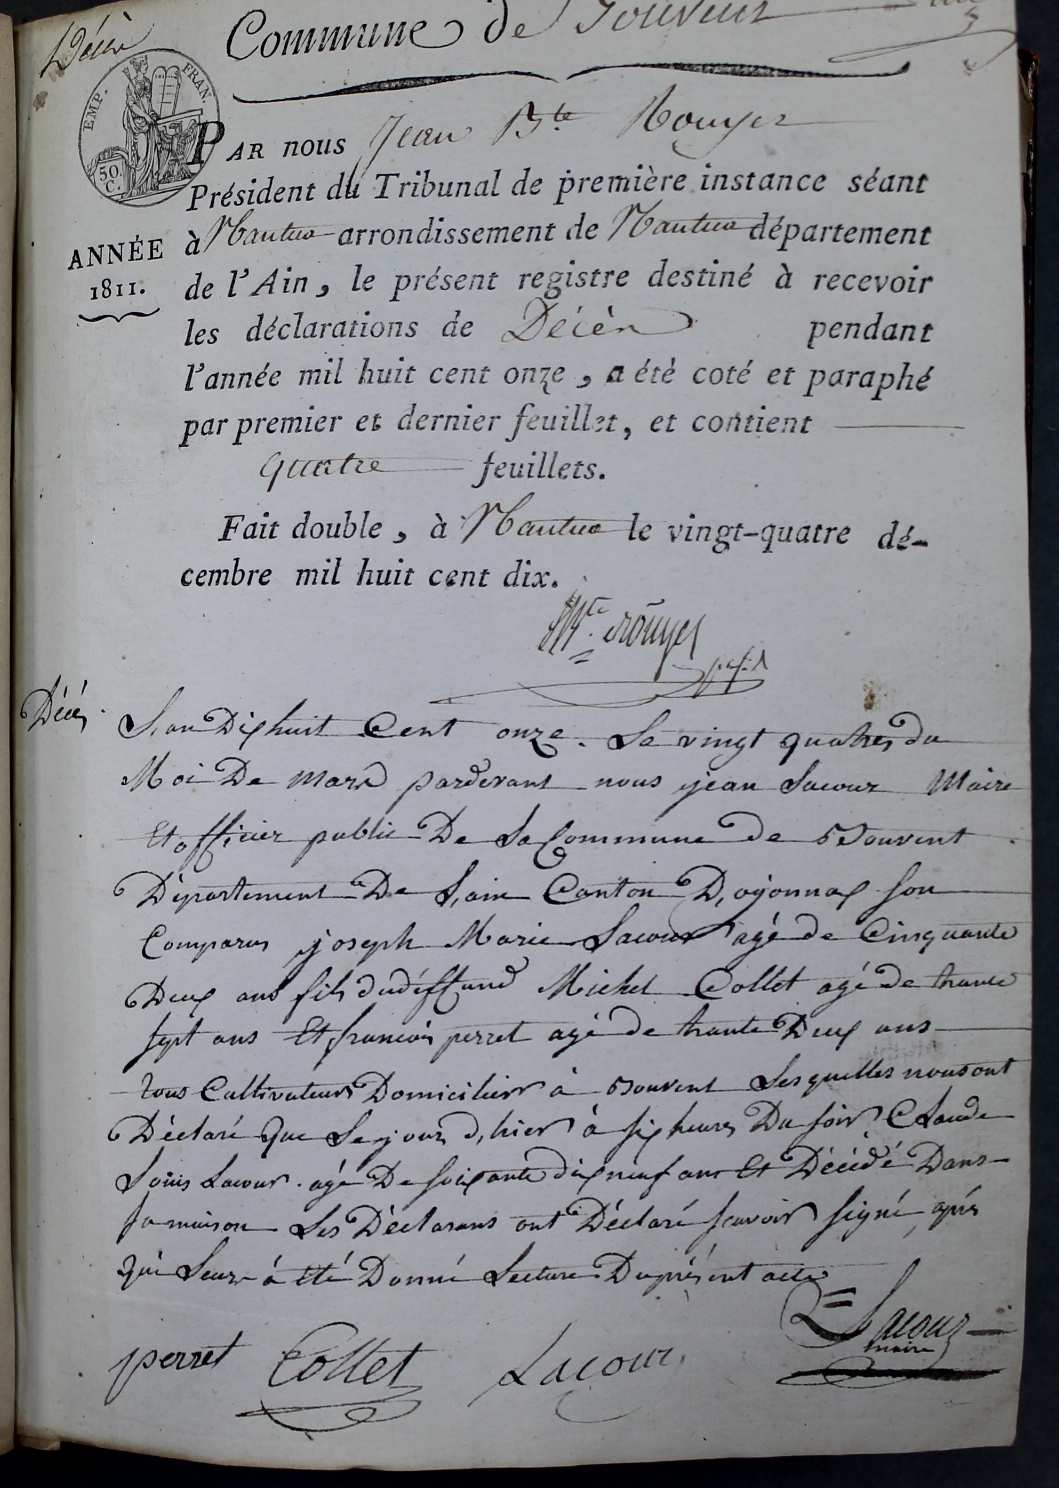 Décès
Commune de Souvent
EMP. FRAN.
50 C.
PAR nous Jean Bte Rouyer
Président du Tribunal de première instance séant
ANNÉE
1811.
à Nantua arrondissement de Nantua département
de l'Ain, le présent registre destiné à recevoir
les déclarations de Décès pendant
l'année mil huit cent onze, a été coté et paraphé
par premier et dernier feuillet, et contient
quatre feuillets.
Fait double, à Nantua le vingt-quatre dé-
cembre mil huit cent dix.
Bte Rouyer
Décés
L,an Dixhuit Cent onze. Le vingt quatres du
Moi De mars pardevant nous jean Lacour Maire
Et officier public De La Commune de Souvent
Département De L,ain Canton D,oyonnax son
Comparus joseph Marie Lacour agé de Cinquante
Deux ans fils dudéffund Michel Collet agé de trante
sept ans Et francois perret agé de trante Deux ans
tous Cultivateurs Domicilier à Souvent Lesquelles nous ont
Déclaré Que Le jour d,hier à six heures Du soir Claude
Louis Lacour. agé De soixante dix neuf ans Et Décédé Dans
sa maison Les Déclarans ont Déclaré scavoir signé, aprés
Qué Leur à été Donné Lecture Duprésent acte
perret Collet Lacour Lacour
maire